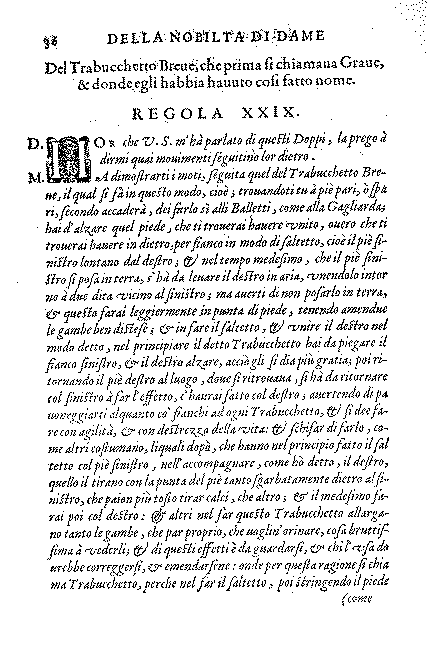 96 DELLA NOBILTA DI DAME
Del Trabucchetto Breue, che prima si chiamaua Graue,
& donde egli habbia hauuto cosi fatto nome.
REGOLA XXIX.
D. OR che V. S. m'hà parlato di questi Doppi, la prego à
dirmi quai mouimenti seguitino lor dietro.
M. A dimostrarti i moti, seguita quel del Trabucchetto Bre-
ue, il qual si fà in questo modo, cioè; trouandoti tu à piè pari, ò spa
ri, secondo accaderà, dei farlo sì alli Balletti, come alla Gagliarda;
hai d'alzare quel piede, che ti trouerai hauere vnito, ouero che ti
trouerai hauere in dietro, per fianco in modo di saltetto, cioè il piè si-
nistro lontano dal destro; & nel tempo medesimo, che il piè sini-
stro si posa in terra, s'hà da leuare il destro in aria, vnendolo intor
no à due dita vicino al sinistro; ma auerti di non posarlo in terra,
& questo farai leggiermente in punta di piede, tenendo amendue
le gambe ben distese; & in fare il saltetto, & vnire il destro nel
modo detto, nel principiare il detto Trabucchetto hai da piegare il
fianco sinistro, & il destro alzare, acciò gli si dia più gratia; poi ri-
tornando il piè destro al luogo, doue si ritrouaua, si hà da ritornare
col sinistro à far l'effetto, c'haurai fatto col destro; auertendo di pa
uoneggiarti alquanto co' fianchi ad ogni Trabucchetto, & si dee fa-
re con agilità, & con destrezza della vita: & schifar di farlo, co-
me altri costumano, liquali dopò, che hanno nel principio fatto il sal
tetto col piè sinistro, nell'accompagnare, come hò detto, il destro,
quello il tirano con la punta del piè tanto sgarbatamente dietro al si-
nistro, che paion più tosto tirar calci, che altro; & il medesimo fa-
rai poi col destro: & altri nel far questo Trabucchetto allarga-
no tanto le gambe, che par proprio, che voglin'orinare, cosa bruttis-
sima à vederli; & di questi effetti è da guardarsi, & chi l'vsa do
urebbe correggersi, & emendarsene: onde per questa ragione si chia
ma Trabucchetto, perche nel far il saltetto, poi stringendo il piede
(come